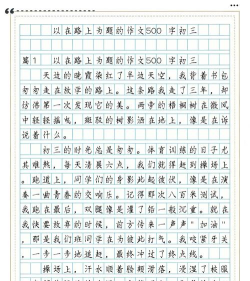 以在路上为题的作文500字初三
篇1 以在路上为题的作文500字初三
天边的晚霞染红了半边天空，我背着书包
匆匆走在放学的路上。这条路我走了三年，却
仿佛第一次发现它的美。两旁的梧桐树在微风
中轻轻摇曳，斑驳的树影洒在地上，像是在诉
说着什么。
初三的时光总是匆匆。体育训练的日子尤
其难熬，每天清晨六点，我们就得赶到操场上
。跑道上，同学们的身影此起彼伏，像是在演
奏一曲青春的交响乐。记得那次八百米测试，
我跑在最后，双腿像是灌了铅一般沉重。就在
我快要放弃的时候，前方传来一声声"加油"
，那是我们班同学在为彼此打气。我咬紧牙关
，一步一步地追赶，最终冲过了终点线。
操场上，汗水顺着脸颊滑落，浸湿了被服